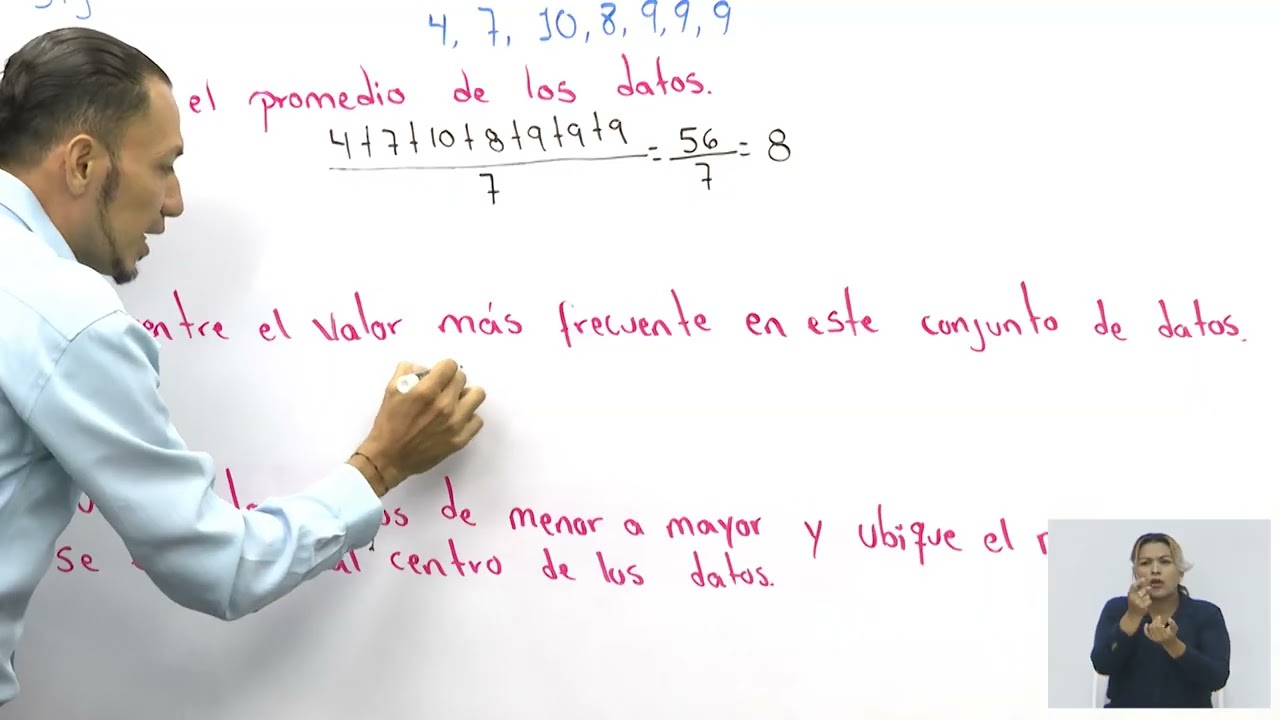 4, 7, 10, 8, 9, 9, 9
el promedio de los datos.
4+7+10+8+9+9+9
7
= 56
7
= 8
el valor más frecuente en este conjunto de datos.
de menor a mayor y ubique el
se al centro de los datos.